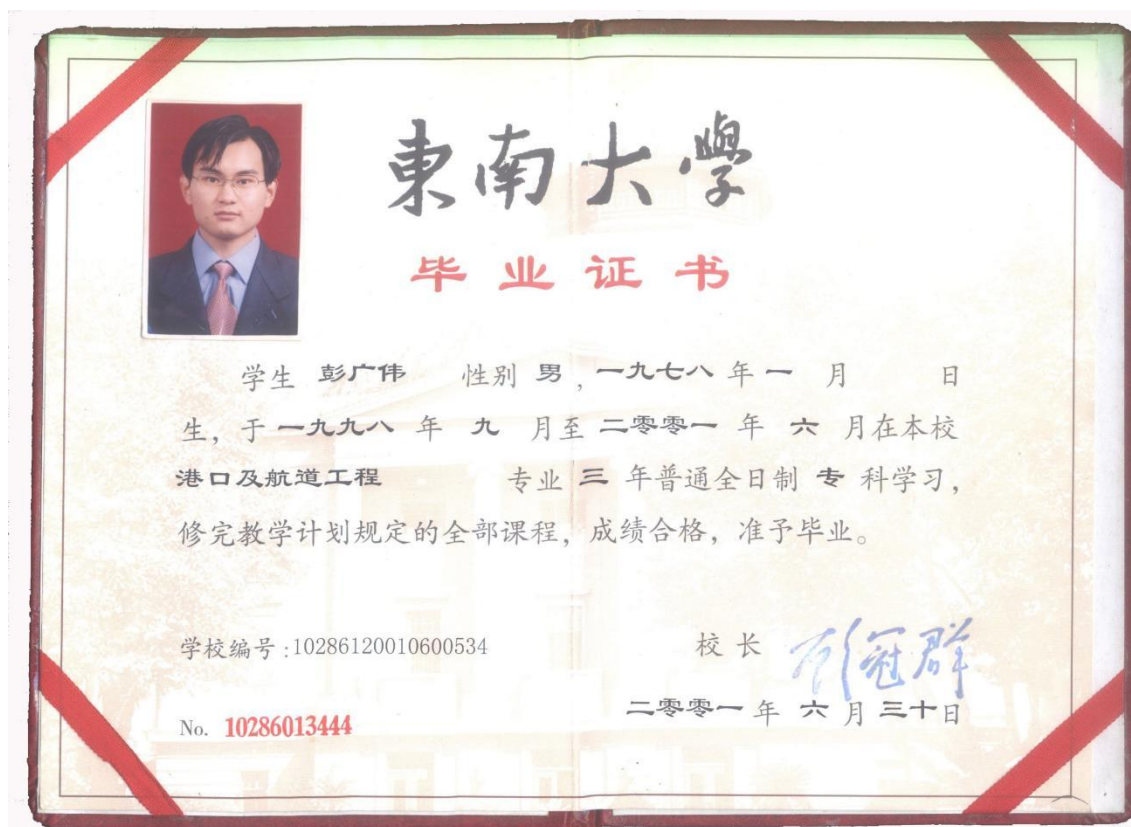 東南大學
毕业证书
学生 彭广伟 性别 男，一九七八 年 一 月 日
生，于 一九九八 年 九 月至 二零零一 年 六 月在本校
港口及航道工程 专业 三 年普通全日制 专 科学习，
修完教学计划规定的全部课程，成绩合格，准予毕业。
学校编号:10286120010600534
校长 顾冠群
No. 10286013444
二零零一 年 六 月 三十日